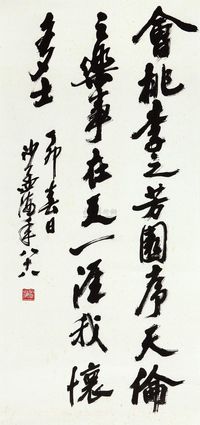 會桃李之芳園序天倫
之樂事在天一涯我懷
多士
丁卯春日
沙孟海年八十八